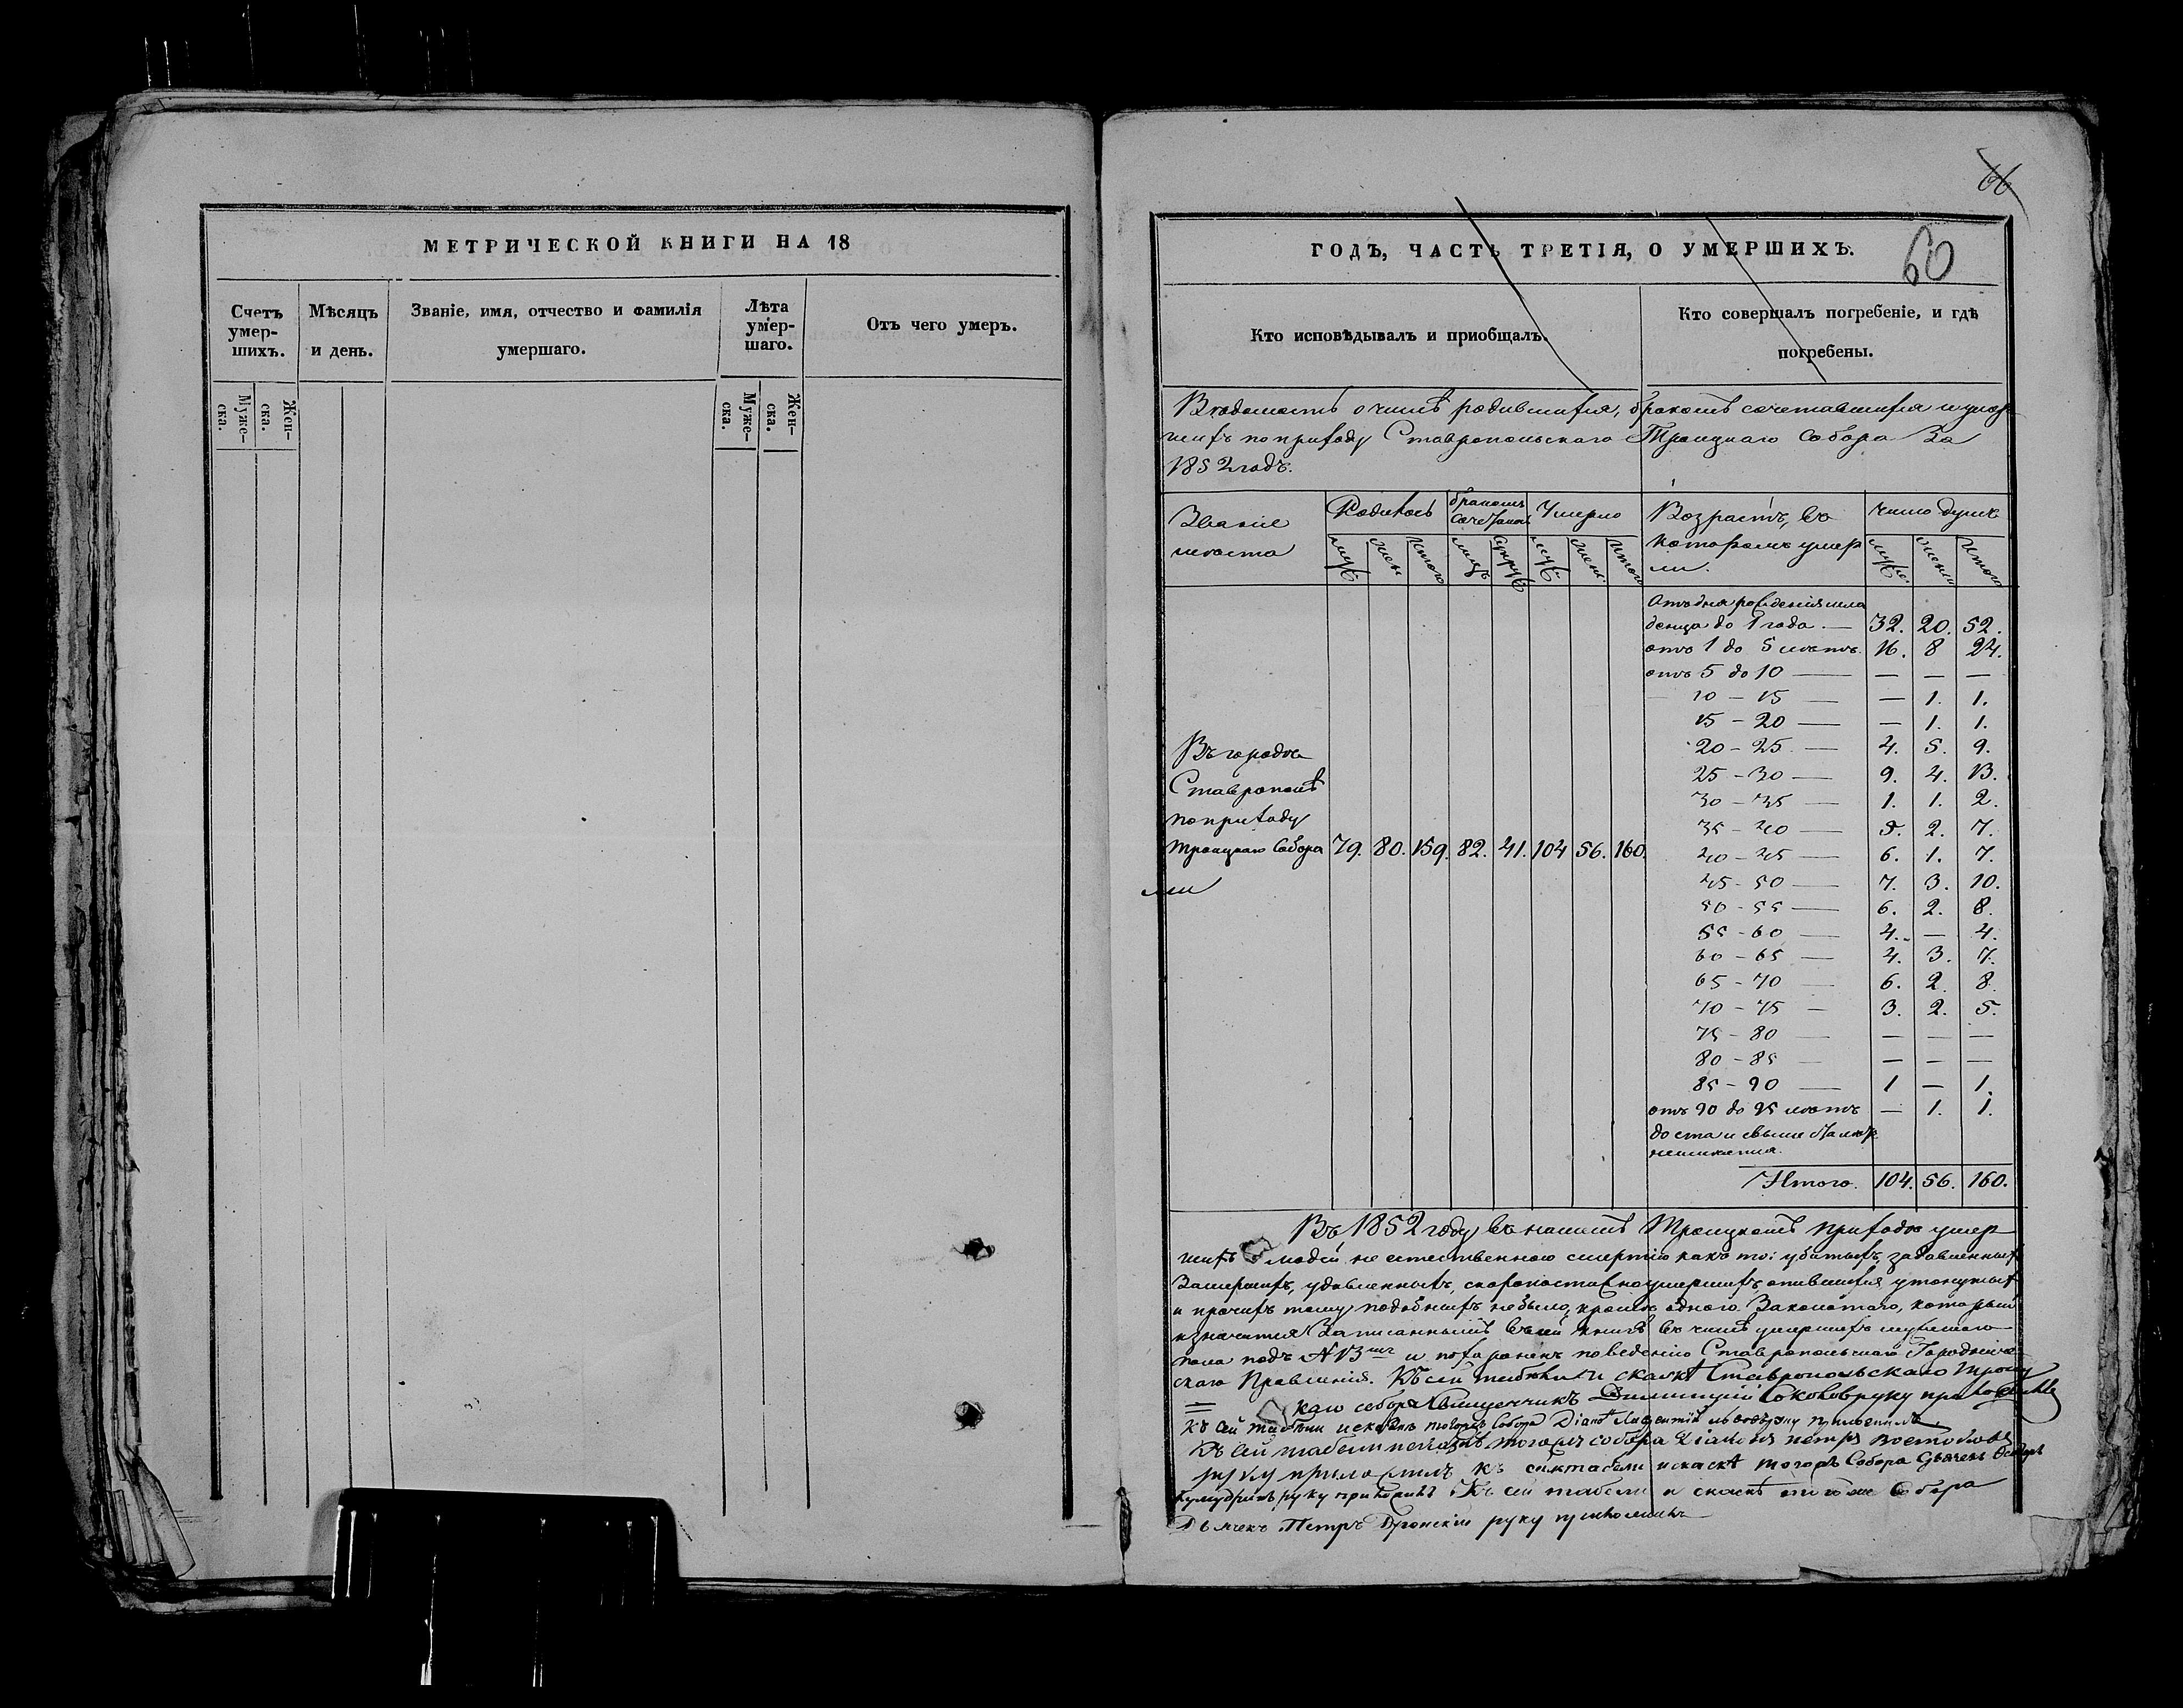 МЕТРИЧЕСКОЙ КНИГИ НА 18
Счетъ умер-шихъ.
Мѣсяцъ и день.
Званіе, имя, отчество и фамилія умершаго.
Лѣта умер-шаго.
Отъ чего умеръ.
Муже-ска.
Жен-ска.
Муже-ска.
Жен-ска.
66
ГОДЪ, ЧАСТЬ ТРЕТІЯ, О УМЕРШИХЪ.
60
Кто исповѣдывалъ и пріобщалъ.
Кто совершалъ погребеніе, и гдѣ погребены.
Вѣдомость о числѣ родившихся, бракомъ сочетавшихся и умер
шихъ по приходу Ставропольскаго Троицкаго Собора За
1852 годъ.
Званіе мѣста
Родилось
бракомъ сочетанось
Умерло
Возрастъ, въ которомъ умерли.
число душъ
муж. жен. итого
муж. супруж.
муж. жен. итого
муж. женск. итого
Отъ дня рожденія мла
денца до 1 года — 32. 20. 52.
отъ 1 до 5 лѣтъ. 16. 8 24.
отъ 5 до 10 — — — —
10 - 15 — — 1. 1.
15 - 20 — — 1. 1.
20 - 25 — 4. 5. 9.
25 - 30 — 9. 4. 13.
30 - 35 — 1. 1. 2.
35 - 40 — 5. 2. 7.
40 - 45 — 6. 1. 7.
45 - 50 — 7. 3. 10.
50 - 55 — 6. 2. 8.
55 - 60 — 4. — 4.
60 - 65 — 4. 3. 7.
65 - 70 — 6. 2 8.
70 - 75 — 3. 2. 5.
75 - 80 — — — —
80 - 85 — — — —
85 - 90 — 1 — 1.
отъ 90 до 95 лѣтъ — 1. 1.
до ста и свыше
Итого. 104. 56. 160.
Въ городѣ
Ставрополѣ
по приходу
Троицкаго Собора 79. 80. 159. 82. 41. 104 56. 160.
Въ 1852 году въ нашемъ Троицкомъ приходѣ умер
шихъ людей не естественною смертію какъ то: убитыхъ, задавленныхъ
Замерзшихъ, удавленныхъ, скоропостижно умершихъ, опившихся, утонутыхъ
и прочихъ тому подобныхъ небыло, кромѣ одного Заколотаго, который
и значится Записаннымъ въ сей книгѣ въ числѣ умершихъ мужескаго
пола подъ N 13мъ и похороненъ по веденію Ставропольскаго Городниче
скаго Правленія. Къ сей табели и сказкѣ Ставропольскаго Троиц
каго собора Священникъ Димитрій Соколовъ руку приложилъ
Къ сей табели и сказкѣ тогожъ Собора Діаконъ руку приложилъ.
Къ сей табели и сказкѣ тогожъ собора Діаконъ Петръ Востоковъ
руку приложилъ Къ сей табели и сказкѣ тогожъ Собора Дьячекъ
руку приложилъ Къ сей табели и сказкѣ тогоже Собора
Дьячекъ Петръ руку приложилъ